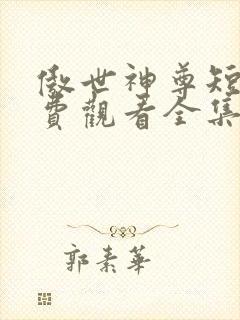 傲世神尊短
費觀看全集
郭素華